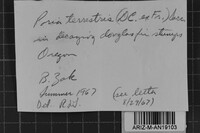 Poria terrestris (DC. ex Fr.) Sacc.
on decaying douglas fir stumps
Oregon
B. Zak
Summer 1967 (see letter
Det. R.L.G. 5/24/67)
ARIZ-M-AN19103